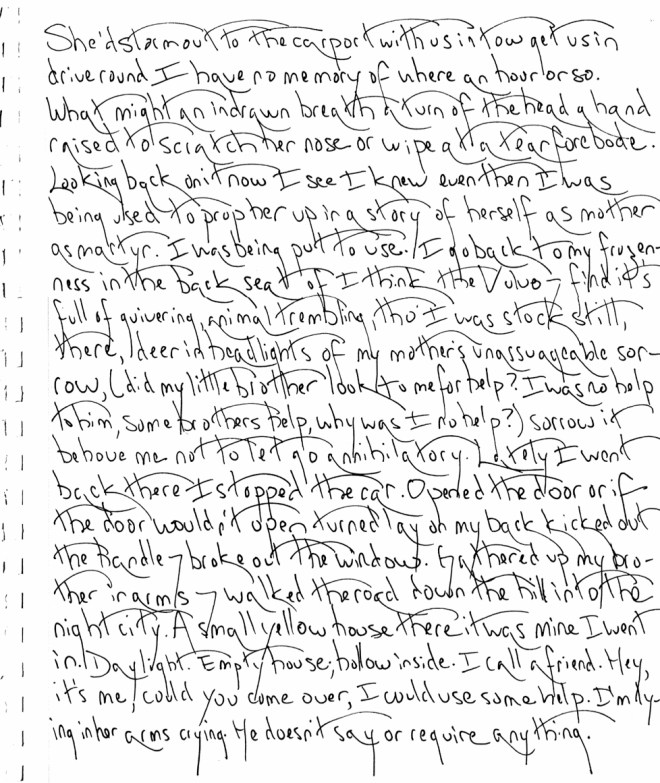 She'd storm out to the carport with us in tow get us in
drive round. I have no memory of where an hour or so.
What might an indrawn breath a turn of the head a hand
raised to scratch her nose or wipe at a tear forebode.
Looking back on it now I see I knew even then I was
being used to prop her up in a story of herself as mother
as martyr. I was being put to use. / I go back to my frozen-
ness in the back seat of I think the Volvo – find it's
full of quivering, animal trembling, tho' I was stock still,
there, / deer in headlights of my mother's unassuageable sor-
row, (did my little brother look to me for help? I was no help
to him, some brothers help, why was I no help?) sorrow it
behove me not to let go annihilatory. Lately I went
back there I stopped the car. Opened the door or if
the door wouldn't open turned lay on my back kicked out
the handle – broke out the window. Gathered up my bro-
ther in arms – walked the road down the hill into the
night city. A small yellow house there it was mine I went
in. / Daylight. Empty house; hollow inside. I call a friend. Hey,
it's me, could you come over, I could use some help. I'm ly-
ing in her arms crying. He doesn't say or require anything.